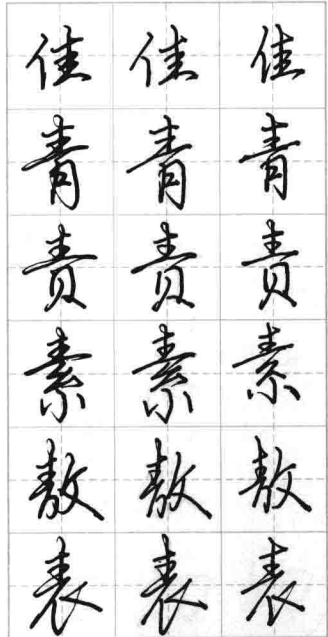 佳佳佳
青青青
责责责
素素素
敖敖敖
表表表